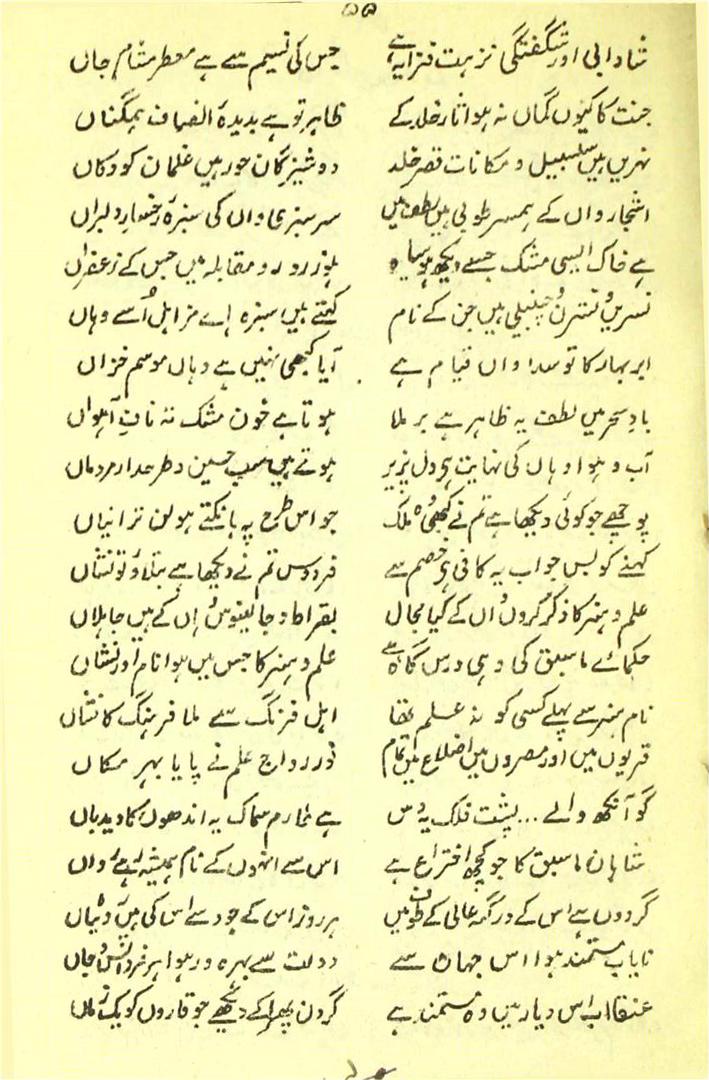 ۵۵
شادابی اور شگفتگی نزہت فزا یہ ہے جس کی نسیم سے ہے معطر مشام جاں
جنت کا کیوں گماں نہ ہو آثار خلد کے ظاہر تو ہے بدیدۂ انصاف بیگماں
نہریں ہیں سلسبیل و مکانات قصر خلد دوشیزگان حور ہیں غلمان کودکاں
اشجار واں کے ہمسر طوبی ہیں لطف میں سرسبزی واں کی سبزۂ رخسار دلبراں
ہے خاک ایسی مشک جسے دیکھ ہو سیاہ ہو زرد رو مقابلہ میں جس کے زعفراں
نسرین و نسترن و چنبیلی ہیں جن کے نام کہتے ہیں سبزہ اے اہل اُسے وہاں
ابر بہار کا تو سدا واں قیام ہے آیا کبھی نہیں ہے وہاں موسم خزاں
باد سحر میں لطف یہ ظاہر ہے برملا ہوتا ہے خون مشک نہ ناف آہواں
آب و ہوا وہاں کی نہایت ہی دل پزیر ہوتے ہیں سب حسین و طرحدار مردماں
پوچھے جو کوئی دیکھا ہے تم نے کبھی وہ ملک جو اس طرح پہ ہانکتے ہو لن ترانیاں
کہنے کو بس جواب یہ کافی ہے خصم سے فردوس تم نے دیکھا ہے بتلاؤ تو نشاں
علم و ہنر کا ذکر کروں اُن کے کیا مجال بقراط و جالینوس اِن کے ہیں جاہلاں
حکمائے ماسبق کی وہی درس گاہ ہے علم و ہنر کا جس میں ہوا نام اور نشاں
نام ہنر سے پہلے کسی کو نہ علم تھا اہل فرنگ سے ملا فرہنگ کا نشاں
قریوں میں اور مصروں میں اضلاع میں تمام زر رواج علم نے پایا بہر مکاں
گو آنکھ والے ... پشت فلک پہ ہے سماک پہ اندھوں کا دیدباں
شاہان ماسبق کا جو کچھ اختراع ہے اس سے انہوں کے نام ہمیشہ رہے رواں
گردوں ہے اس کے درگہ عالی کے طوف میں ہر روز اس کے جود سے اس کی ہیں
نایاب مستمند ہوا اس جہان سے دولت سے بہرہ ور ہوا ہر فرد انس و جاں
عنقا اب اس دیار میں وہ مستمند ہے گردن پھرا کے دیکھے جو قاروں کو یک زماں